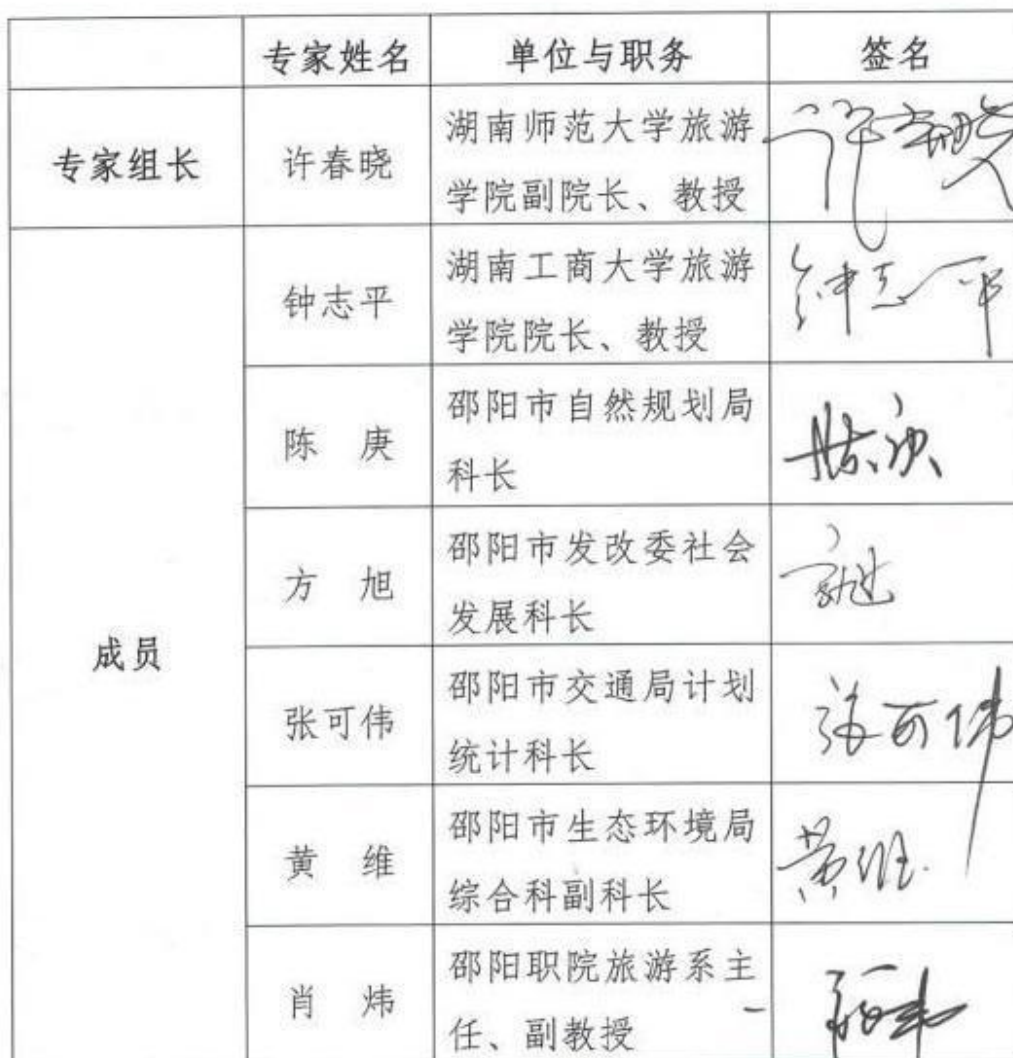 专家姓名 单位与职务 签名
专家组长 许春晓 湖南师范大学旅游
学院副院长、教授 许春晓
成员
钟志平 湖南工商大学旅游
学院院长、教授 钟志平
陈 庚 邵阳市自然规划局
科长
方 旭 邵阳市发改委社会
发展科长
张可伟 邵阳市交通局计划
统计科长 张可伟
黄 维 邵阳市生态环境局
综合科副科长 黄维
肖 炜 邵阳职院旅游系主
任、副教授